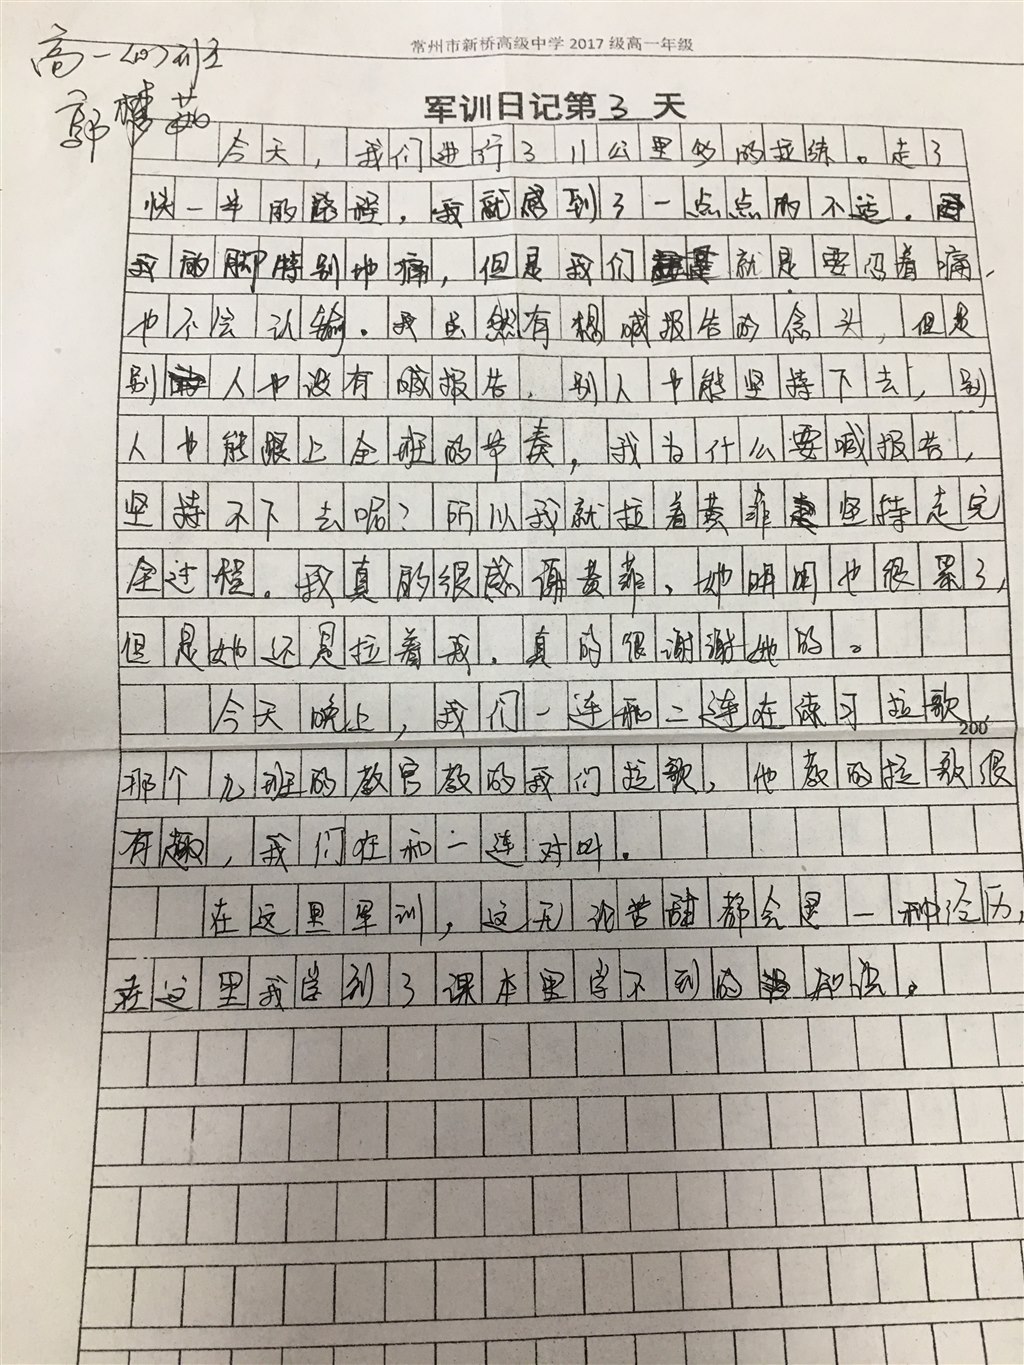 常州市新桥高级中学2017级高一年级
高一班
郭梦茹
军训日记第3天
今天，我们进行了11公里多的拉练。走了
快一半的路程，我就感到了一点点的不适。
我的脚特别地痛，但是我们就是要冯着痛，
也不会认输。我虽然有想喊报告的念头，但是
别人也没有喊报告，别人也能坚持下去，别
人也能跟上全班的节奏，我为什么要喊报告，
坚持不下去呢？所以我就拉着黄菲坚持走完
全过程。我真的很感谢黄菲，她明明也很累了，
但是她还是拉着我，真的很谢谢她的。
今天晚上，我们一连和二连在练习拉歌
200
那个九班的教官教的我们拉歌，他教的拉歌很
有趣，我们在和一连对叫。
在这里军训，这无论苦甜都会是一种经历，
在这里我学到了课本里学不到的知识。